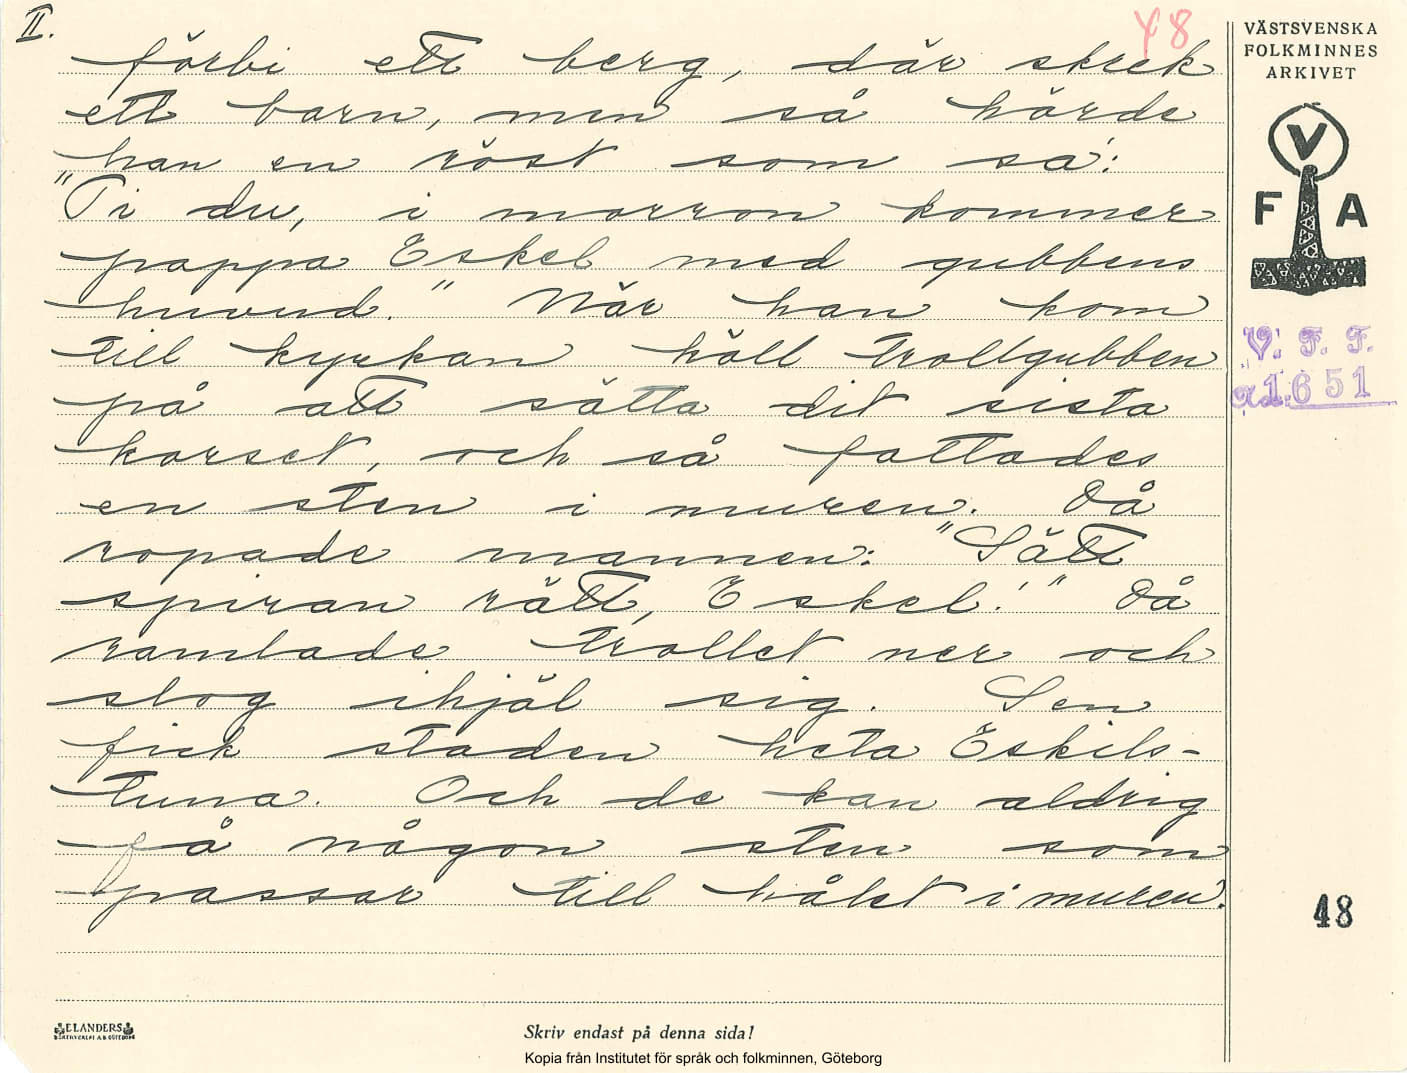 II.
48
förbi ett berg, där skrek
ett barn, men så hörde
han en röst som sa':
"Ti du, i morron kommer
pappa Eskel med gubbens
huvud." När han kom
till kyrkan höll trollgubben
på att sätta dit sista
korset, och så fattades
en sten i muren. Då
ropade mannen: "Sätt
spiran rätt, Eskel!" Då
ramlade trollet ner och
slog ihjäl sig. Sen
fick staden heta Eskils-
tuna. Och de kan aldrig
få någon sten som
passar till hålet i muren.
VÄSTSVENSKA
FOLKMINNES
ARKIVET
V
F A
V. F. F.
1651
48
ELANDERS
Skriv endast på denna sida!
Kopia från Institutet för språk och folkminnen, Göteborg